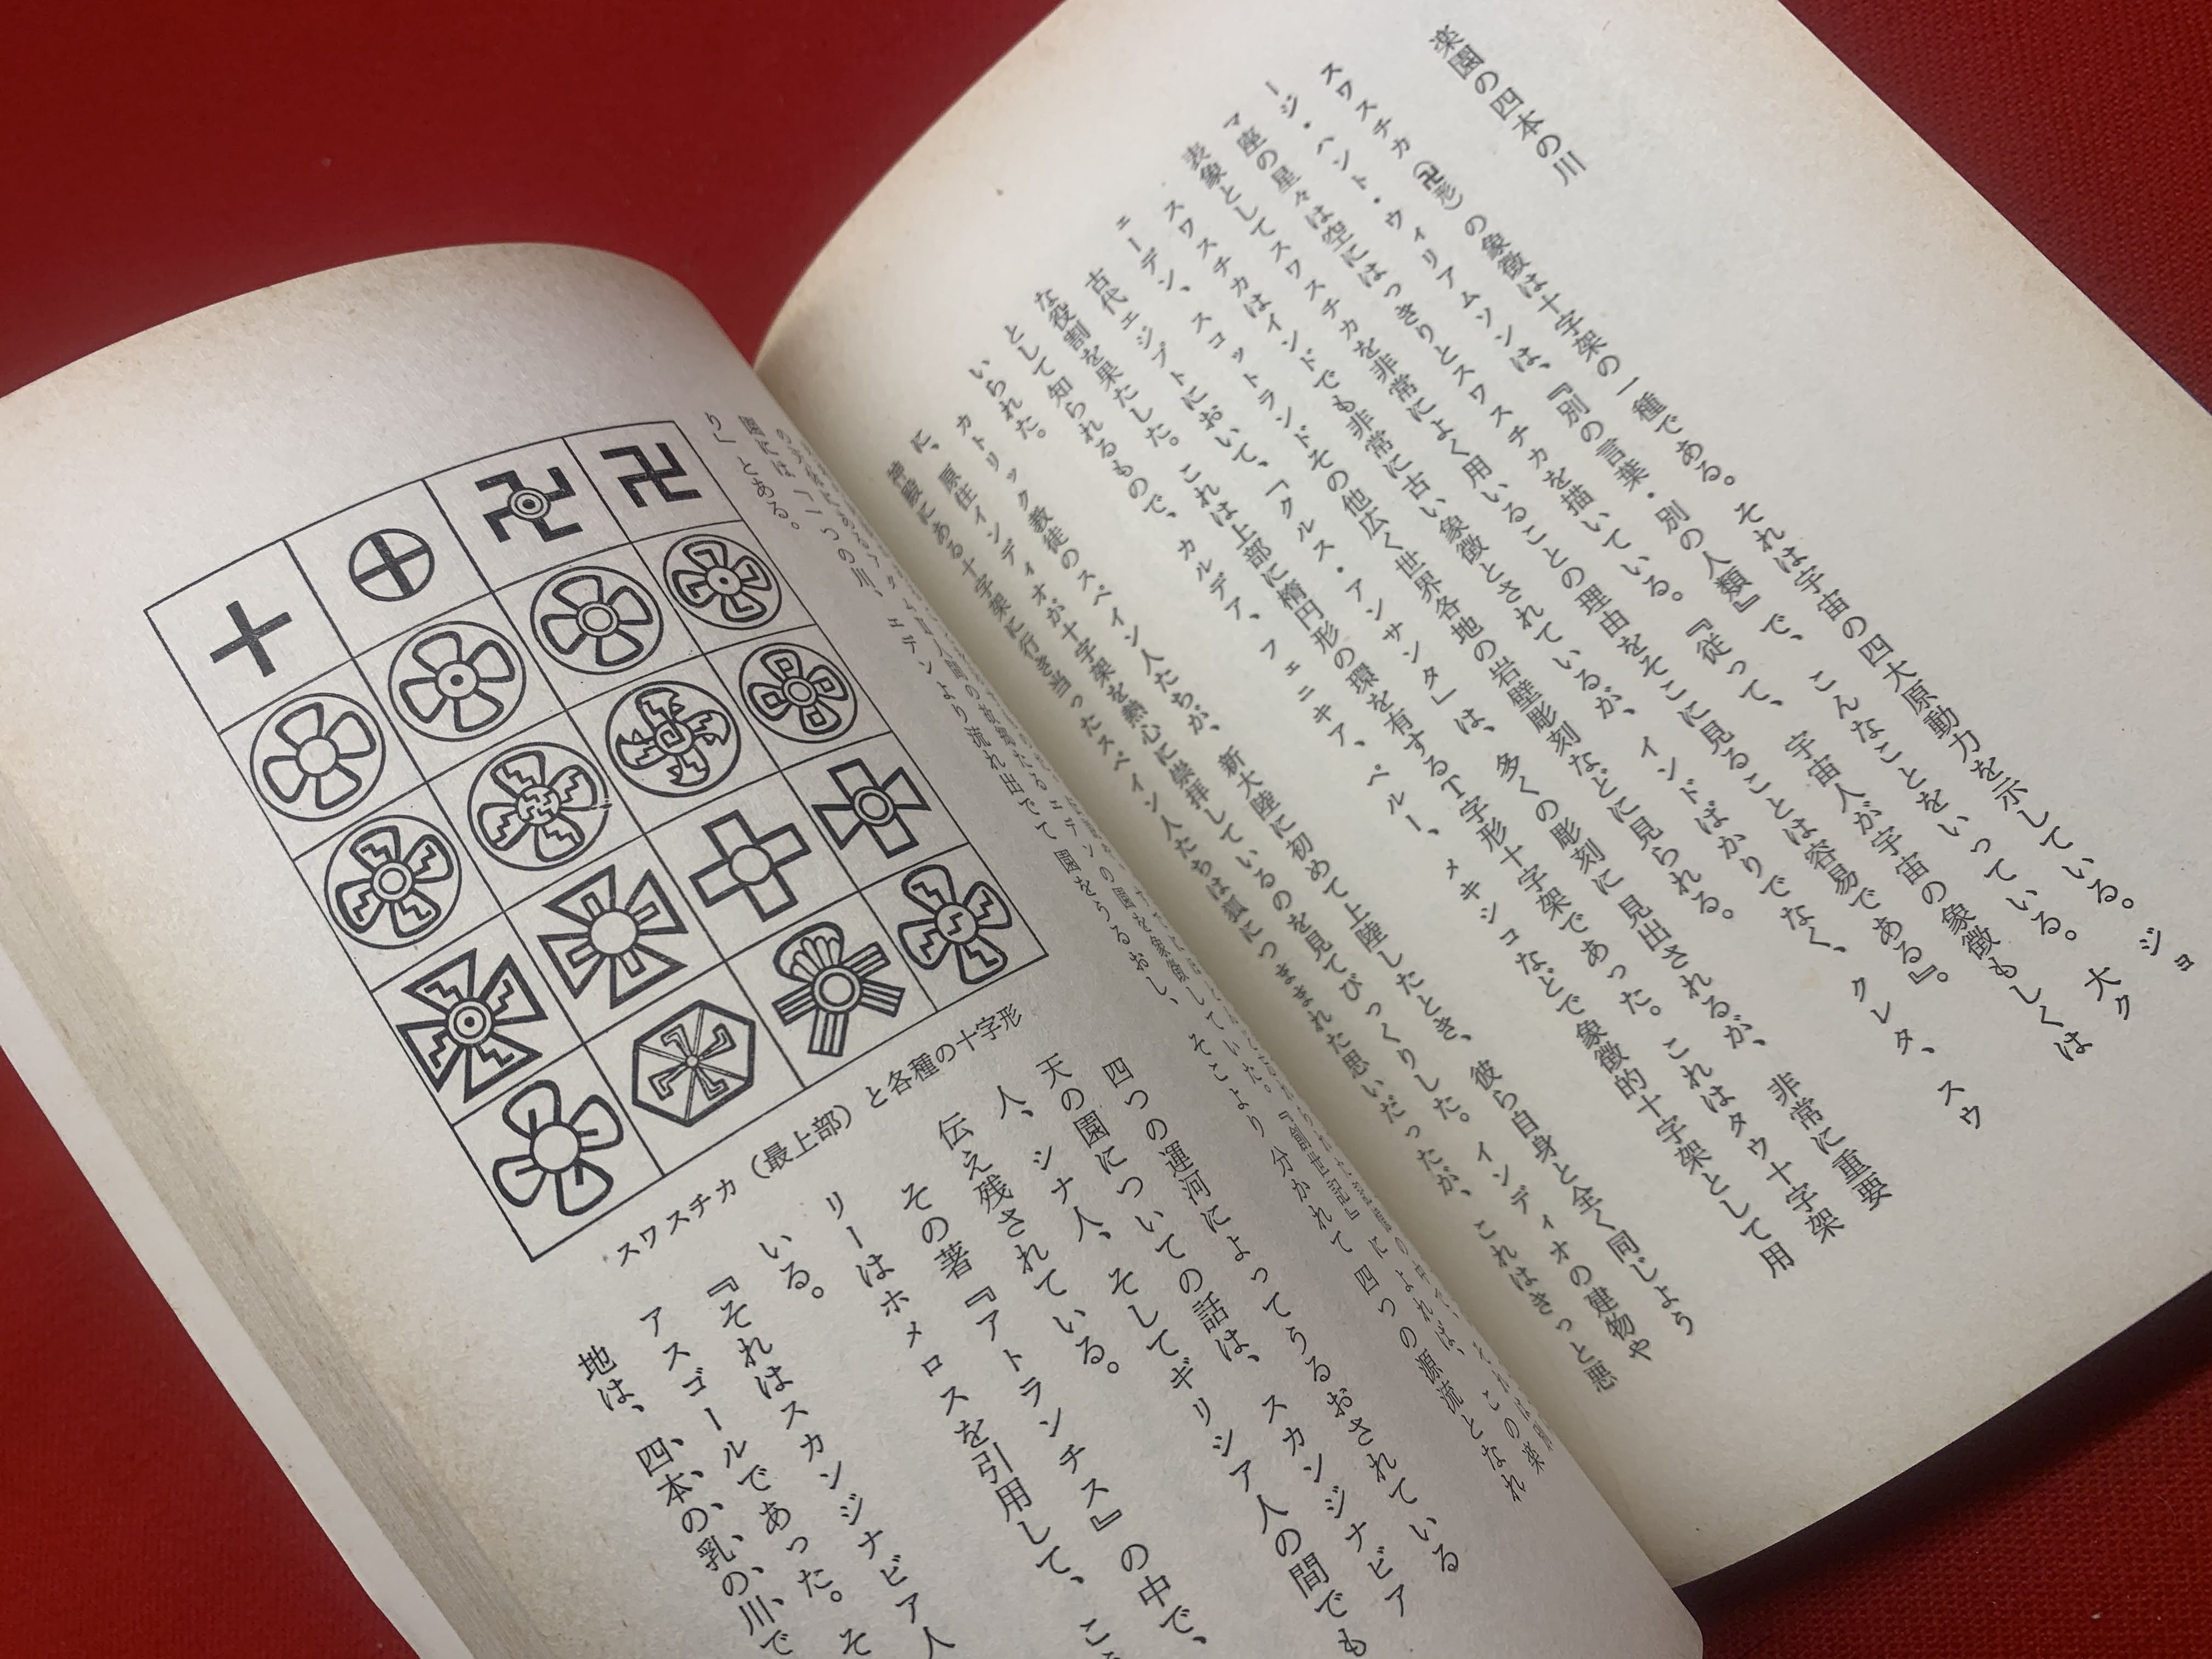 楽園の四本の川
スワスチカ(卍形)の象徴は十字架の一種である。それは宇宙の四大原動力を示している。ジョ
ージ・ハント・ウィリアムソンは、『別の言葉・別の人類』で、こんなことをいっている。大ク
マ座の星々は空にはっきりとスワスチカを描いている。『従って、宇宙人が宇宙の象徴もしくは
表象としてスワスチカを非常によく用いることの理由をそこに見ることは容易である』。
スワスチカはインドでも非常に古い象徴とされているが、インドばかりでなく、クレタ、スウ
ェーデン、スコットランドその他広く世界各地の岩壁彫刻などに見られる。
古代エジプトにおいて、「クルス・アンサンタ」は、多くの彫刻に見出されるが、非常に重要
な役割を果たした。これは上部に楕円形の環を有するT字形十字架であった。これはタウ十字架
として知られるもので、カルデア、フェニキア、ペルー、メキシコなどで象徴的十字架として用
いられた。
カトリック教徒のスペイン人たちが、新大陸に初めて上陸したとき、彼ら自身と全く同じよう
に、原住インディオが十字架を熱心に崇拝しているのを見てびっくりした。インディオの建物や
神殿にある十字架に行き当ったスペイン人たちは狐につままれた思いだったが、これはきっと悪
エデンの園を象徴していた。『創世記』によれば、この楽
園には「一つの川、エデンより流れ出でて園をうるおし、そこより分かれて四つの源流となれ
り」とある。
スワスチカ(最上部)と各種の十字形
四つの運河によってうるおされている
天の園についての話は、スカンジナビア
人、シナ人、そしてギリシア人の間でも
伝え残されている。
その著『アトランチス』の中で、
リーはホメロスを引用して、こ
いる。
『それはスカンジナビア人
アスゴールであった。そ
地は、四本の乳の川で